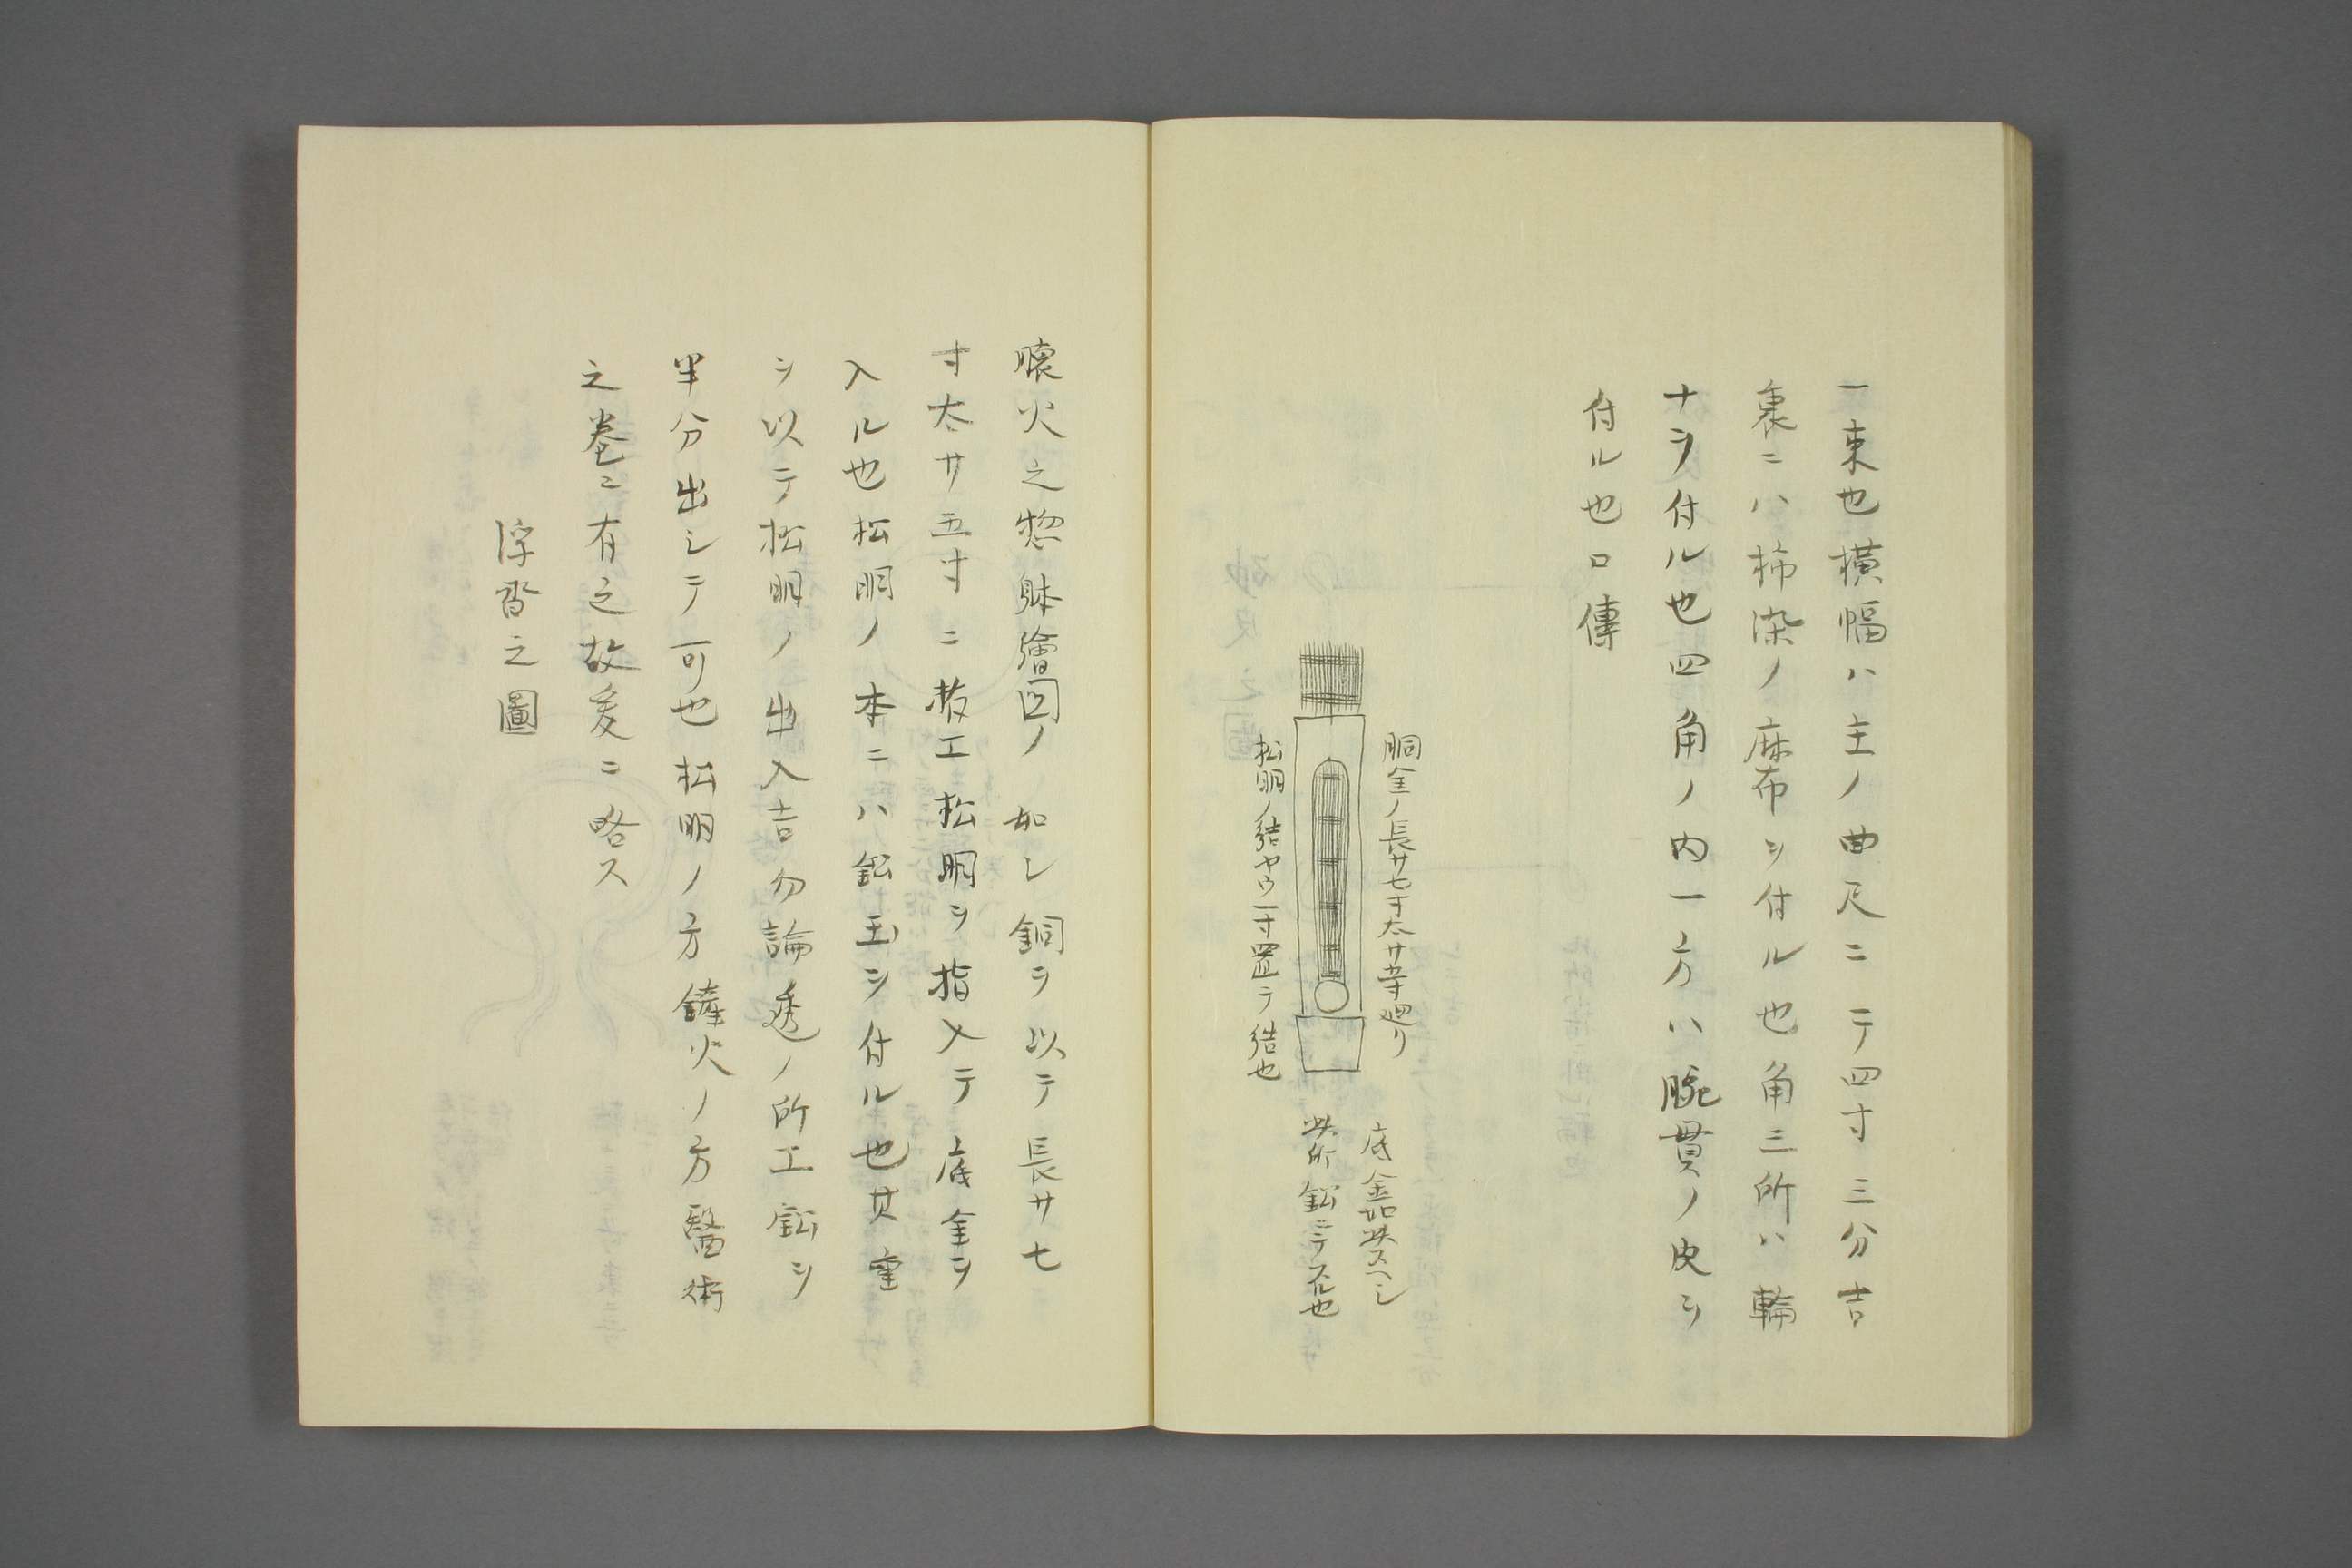 一束也横幅ハ主ノ曲尺ニテ四寸三分吉
裏ニハ柿染ノ麻布ヲ付ル也角三所ハ輪
ナヲ付ル也四角ノ内一方ハ腕貫ノ皮ヲ
付ル也口傳
胴金ノ長サ七寸太サ五寸廻リ
松明ノ結ヤウ一寸置テ結也
底金如此スヘシ
此所鉛ニテスル也
懐火之惣躰繪図ノ如シ銅ヲ以テ長サ七
寸太サ五寸ニ拵エ松明ヲ指入テ底金ヲ
入ル也松明ノ本ニハ鉛玉ヲ付ル也其重
ヲ以テ松明ノ出入吉勿論透ノ所エ鉛ヲ
半分出シテ可也松明ノ方鏲火ノ方醫術
之巻ニ有之故爰ニ略ス
浮沓之圖